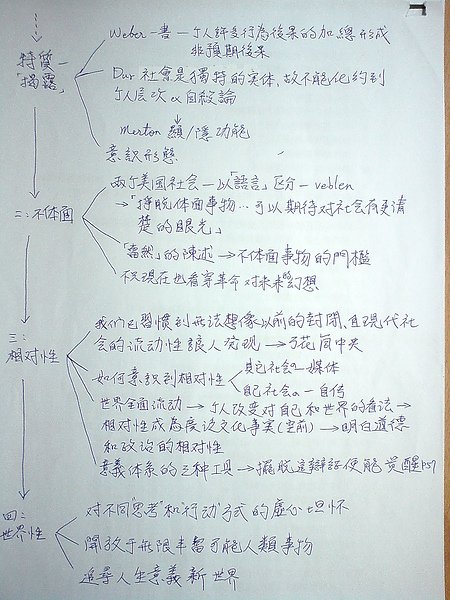 特質一
「揭露」
Weber一書—个人許多行為後果的加總形成
非預期後果
Dur 社會是獨特的实体,故不能化約到
个人层次 ex自殺論
Merton 顯/隱功能
意識形態
二:不体面
兩个美国社会—以「語言」区分—veblen
→「掙脫体面事物…可以期待对社会有更清
楚的眼光」
「當然」的陳述→不体面事物的門檻
不只現在也看穿革命对未來的幻想
三:
相对性
我們已習慣到無法想像以前的封閉,且現代社
会的流动性讓人发現→万花筒中央
如何意識到相对性
其它社会—媒体
自己社会—自传
世界全面流动→个人改变对自己和世界的看法→
相对性成為廣泛文化事實(空前)→明白道德
和政治的相对性
意義体系的三种工具→擺脫這辯証便能覺醒P57
四:
世界性
对不同"思考"和"行动"方式的虛心坦怀
開放于無限丰富可能人類事物
追尋人生意義新世界